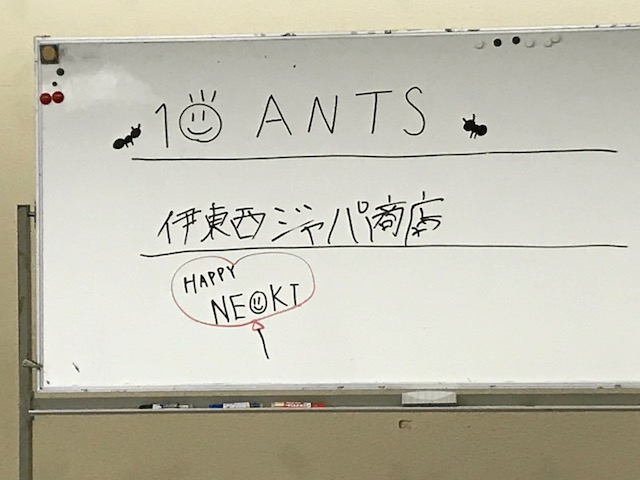 10 ANTS
伊東西ジャパ商店
HAPPY
NEOKI